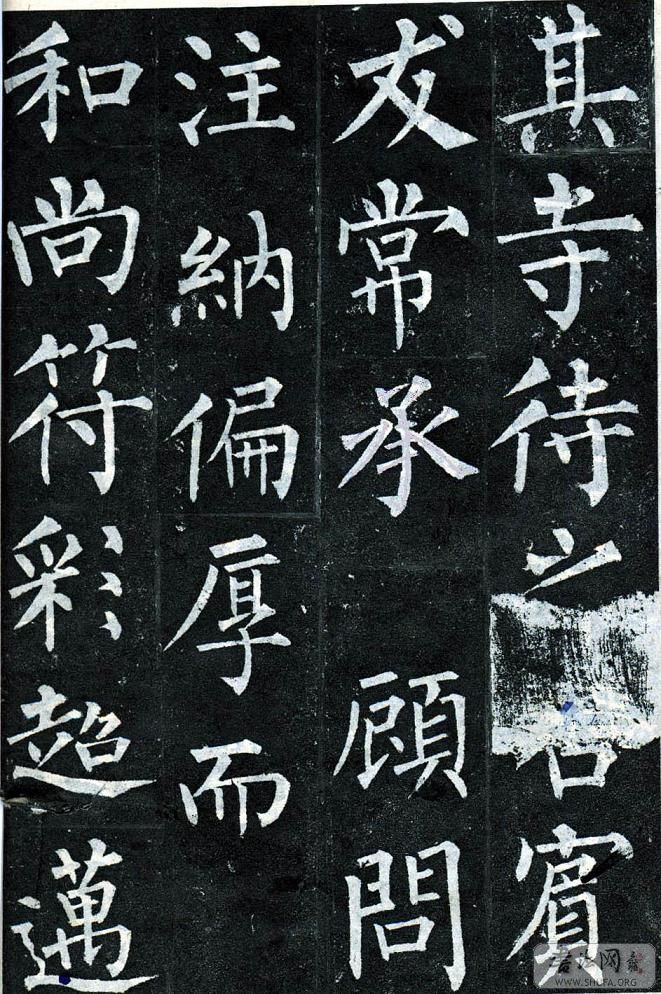 其寺待之賓
友常承顧問
注納偏厚而
和尚符彩超邁
书法网
WWW.SHUFA.ORG